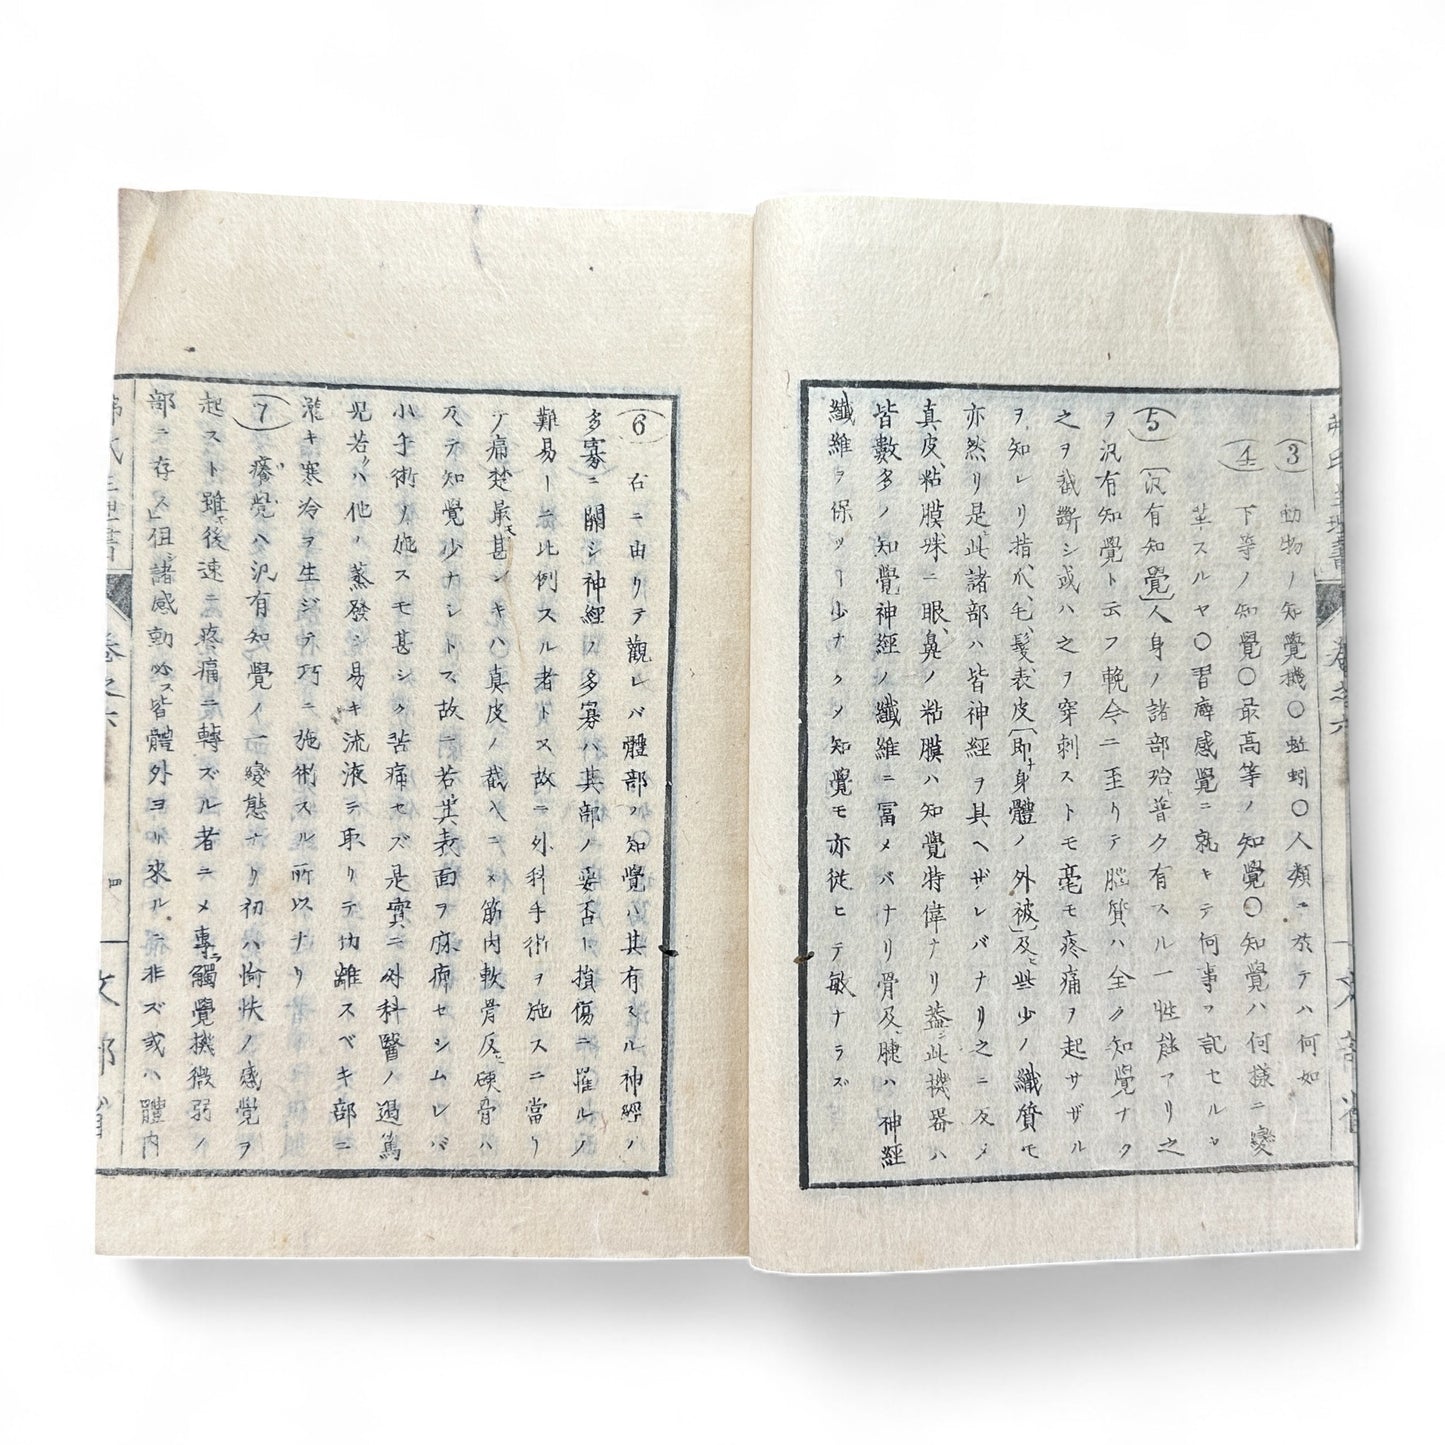 3 動物ノ知覺機〇蚯蚓〇人類ニ於テハ何如
4 下等ノ知覺〇最高等ノ知覺〇知覺ハ何樣ニ變
スルヤ〇習癖感覺ニ就キテ何事ヲ記セルヤ
5 〔汎有知覺〕人身ノ諸部殆普ク有スル一性能アリ之
ヲ汎有知覺ト云フ輓今ニ至リテ腦質ハ全ク知覺ナク
之ヲ截斷シ或ハ之ヲ穿刺ストモ毫モ疼痛ヲ起サザル
ヲ知レリ指爪、毛、髮、表皮〔即チ身體ノ外被〕及ビ些少ノ纖質モ
亦然リ是此諸部ハ皆神經ヲ具ヘザレバナリ之ニ反メ
真皮、粘膜殊ニ眼、鼻ノ粘膜ハ知覺特偉ナリ蓋シ此機器ハ
皆數多ノ知覺神經ノ纖維ニ冨メバナリ骨及ビ腱ハ神經
纖維ヲ保ツヿ少ナクメ知覺モ亦從ヒテ敏ナラズ
6 右ニ由リテ觀レバ體部ノ知覺ハ其有スル神經ノ
多寡ニ關シ神經ノ多寡ハ其部ノ要否ト損傷ニ罹ルノ
難易トニ比例スル者トス故ニ外科手術ヲ施スニ當リ
テ痛楚最モ甚シキハ真皮ノ截入ニメ筋肉軟骨及ビ硬骨ハ
反テ知覺少ナシトス故ニ若其表面ヲ麻痺セシムレバ
小手術ノ施スモ甚シク苦痛セズ是實ニ外科醫ノ過篤
兒若クハ他ノ蒸發シ易キ流液ヲ取リテ切離スベキ部ニ
灌キ寒冷ヲ生ジテ巧ニ施術スル所以ナリ
7 癢覺ハ汎有知覺ノ一變態ナリ初ハ愉快ノ感覺ヲ
起スト雖モ後速ニ疼痛ニ轉ズル者ニメ專ラ觸覺機微弱ノ
部ニ存ス」但諸感動必ス皆體外ヨリ來ルニ非ズ或ハ體内
生理書
卷之六
四
文部省